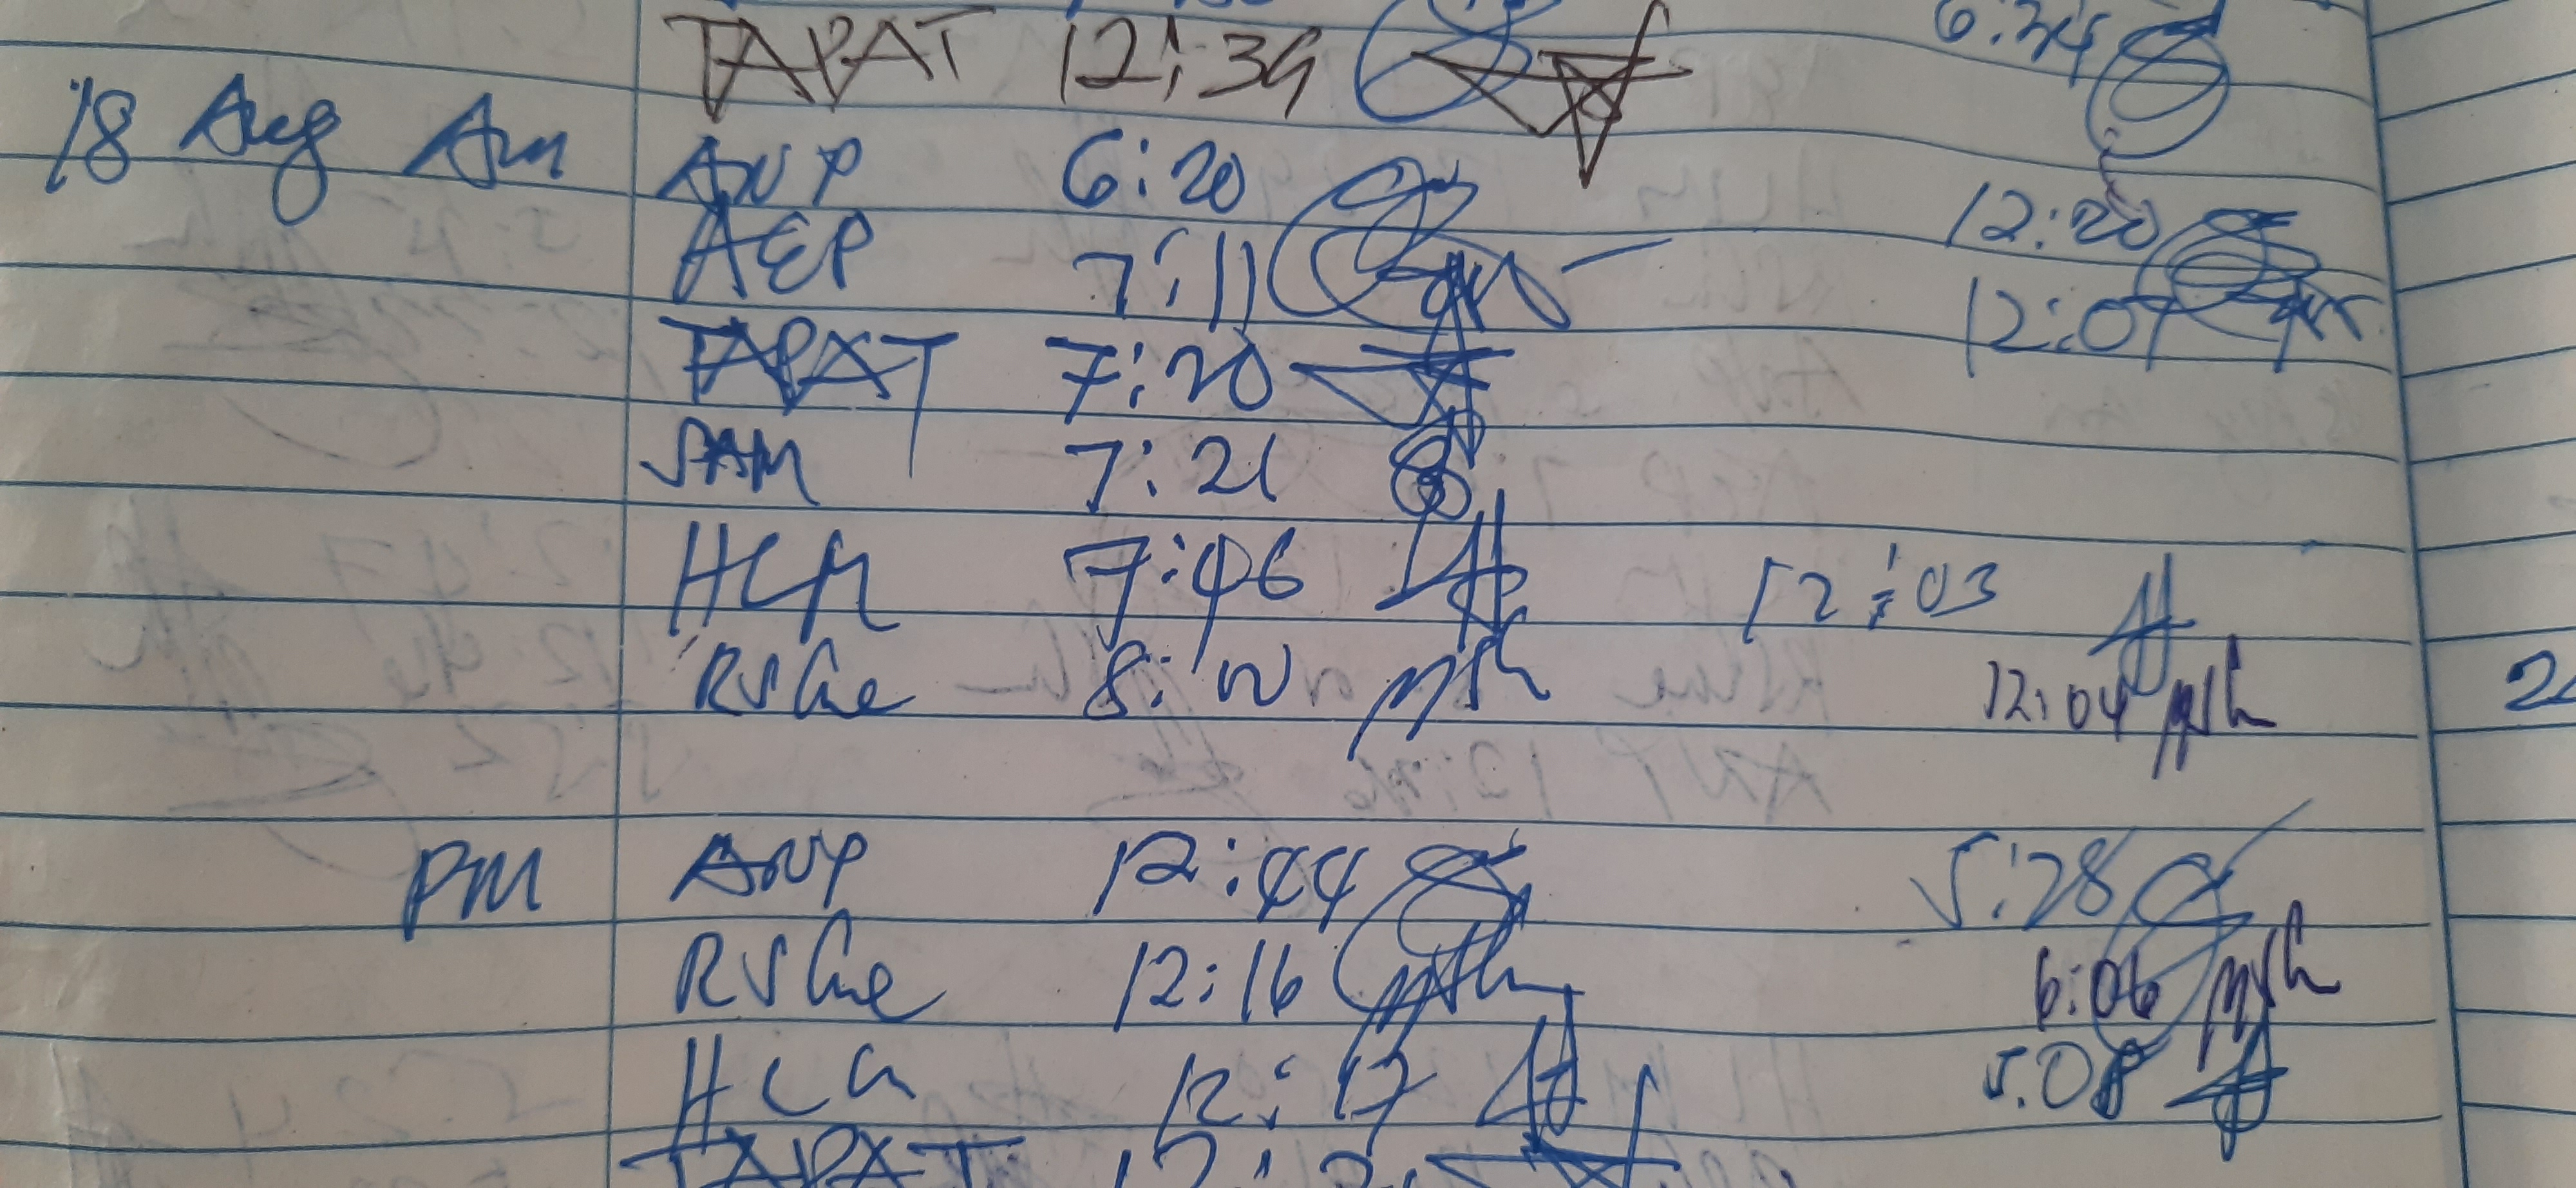 TAPAT 12:39 6:34
18 Aug Am ANP 6:20 12:20
AEP 7:11 12:07
TAPAT 7:20
SAM 7:21
HCM 7:46 12:03
RSGe 8:10 12:04
PM ANP 12:44 5:28
RSGe 12:16 6:06
HCM 12:17 5.08
TAPAT